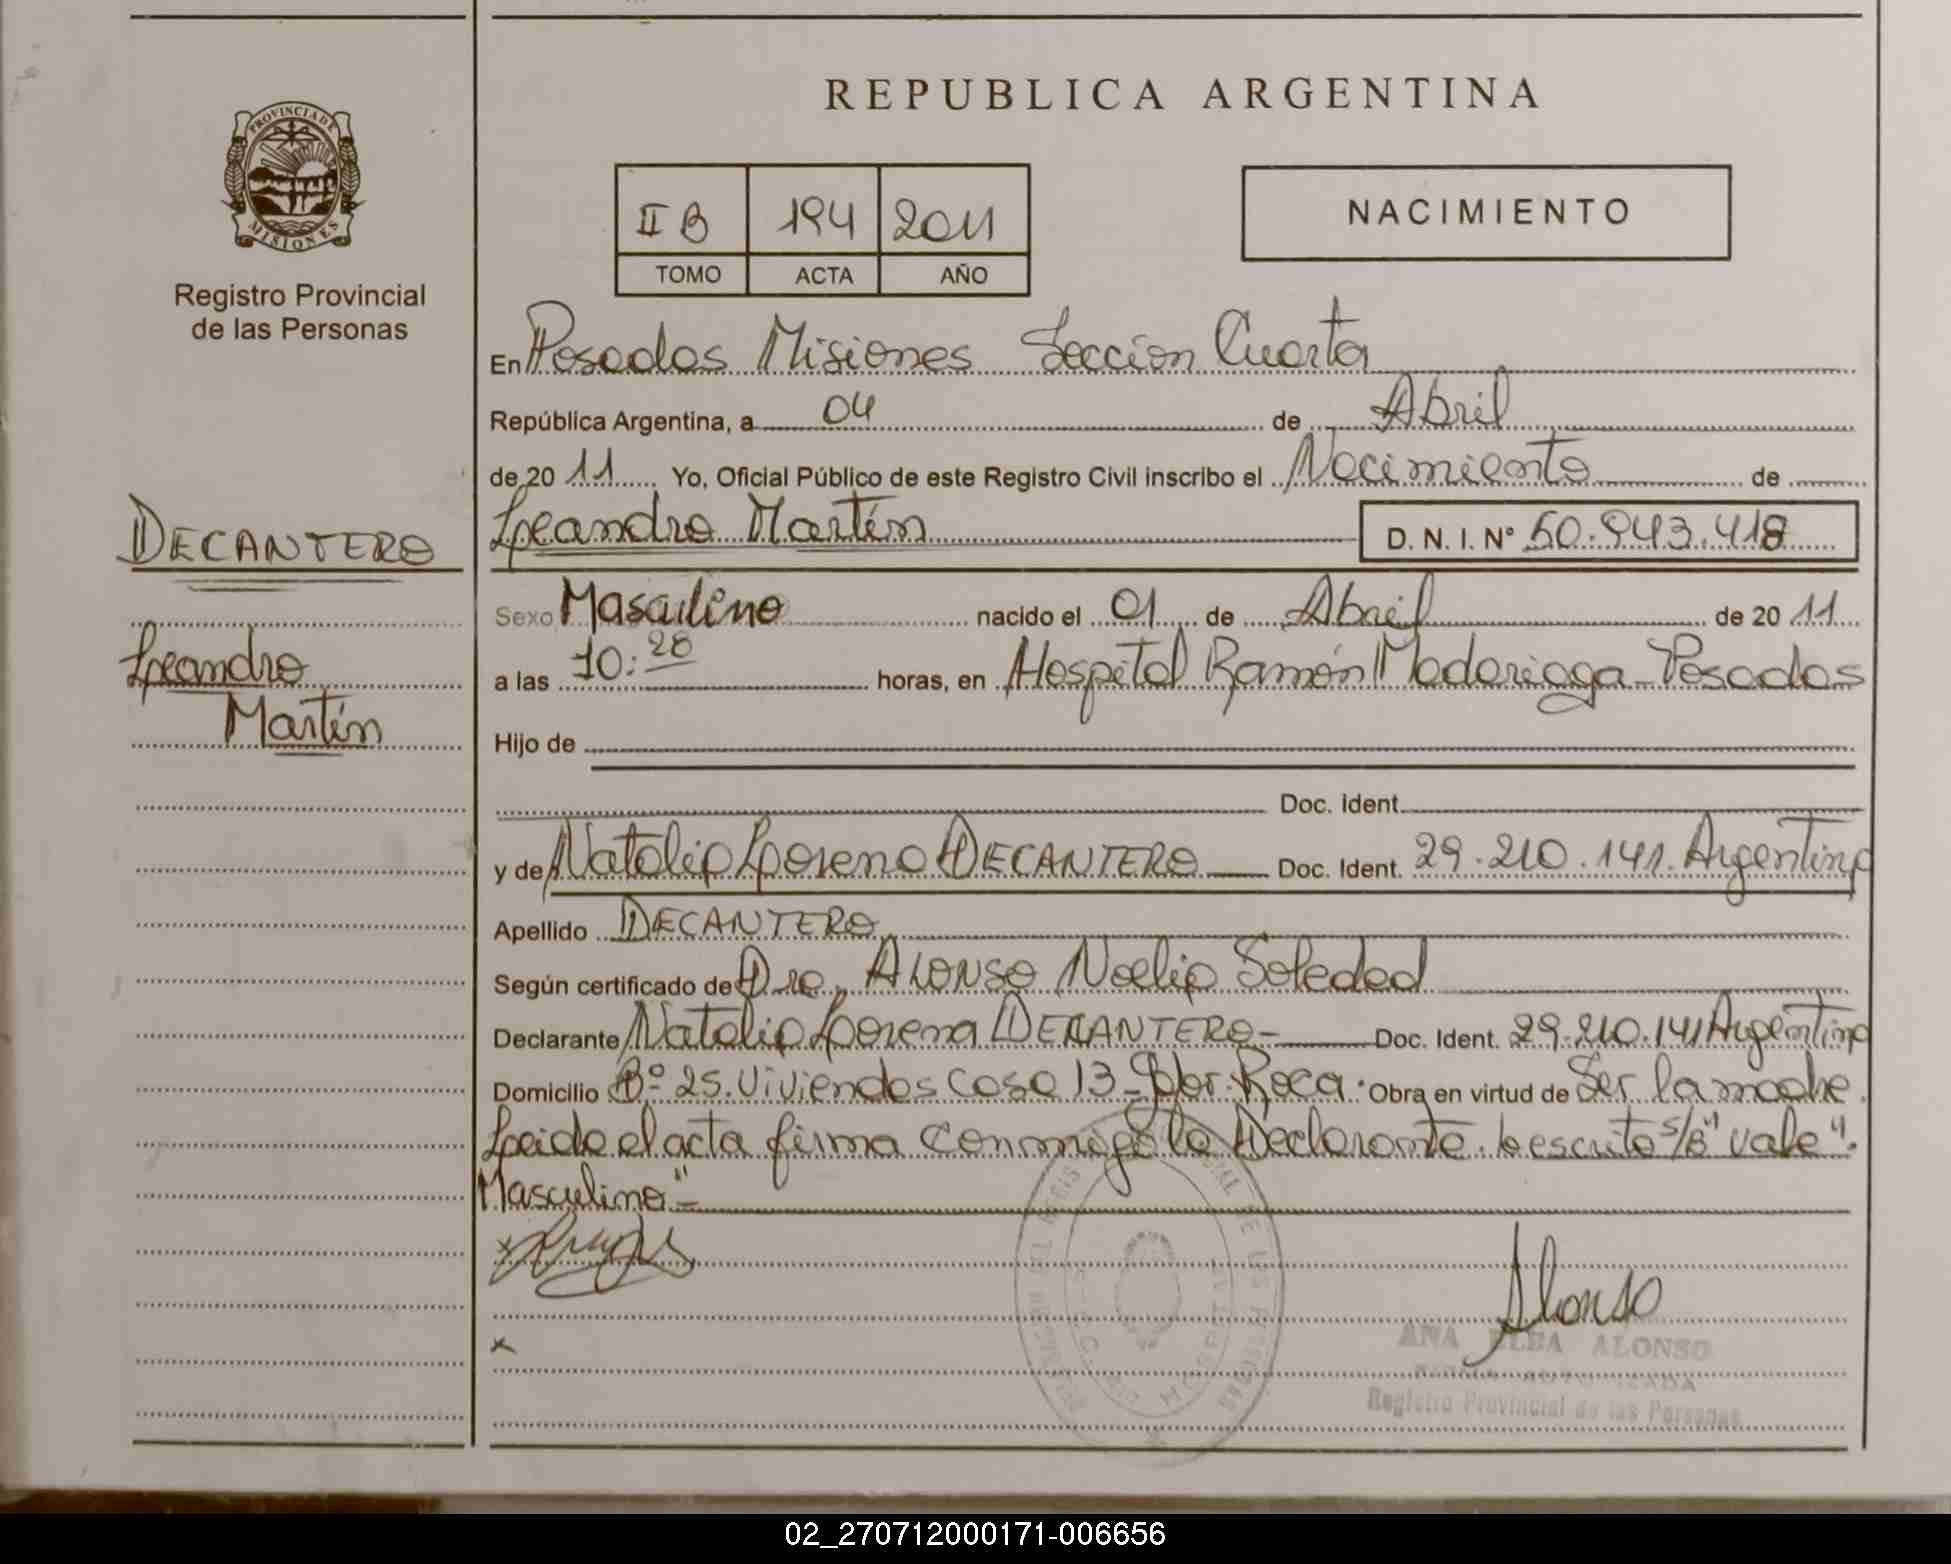 REPUBLICA ARGENTINA
PROVINCIA DE
MISIONES
Registro Provincial
de las Personas
II B 194 2011
TOMO ACTA AÑO
NACIMIENTO
En Posadas Misiones Seccion Cuarta
República Argentina, a 04 de Abril
de 20 11 Yo, Oficial Público de este Registro Civil inscribo el Nacimiento de
DECANTERO
Leandro Martín D. N. I. N° 50.943.418
Sexo Masculino nacido el 01 de Abril de 20 11
Leandro
Martín
a las 10:28 horas, en Hospital Ramón Madariaga - Posadas
Hijo de
Doc. Ident.
y de Natalia Lorena DECANTERO Doc. Ident. 29.210.141. Argentina
Apellido DECANTERO
Según certificado de Dra. ALONSO Noelia Soledad
Declarante Natalia Lorena DECANTERO - Doc. Ident. 29.210.141 Argentina
Domicilio B° 25. Viviendas Casa 13 - Gdor. Roca. Obra en virtud de Ser la madre.
Leida el acta firma conmigo la Declarante. lo escrito s/b "vale".
Masculino" -
Alonso
ANA ELBA ALONSO
FIRMA AUTORIZADA
Registro Provincial de las Personas
02_270712000171-006656